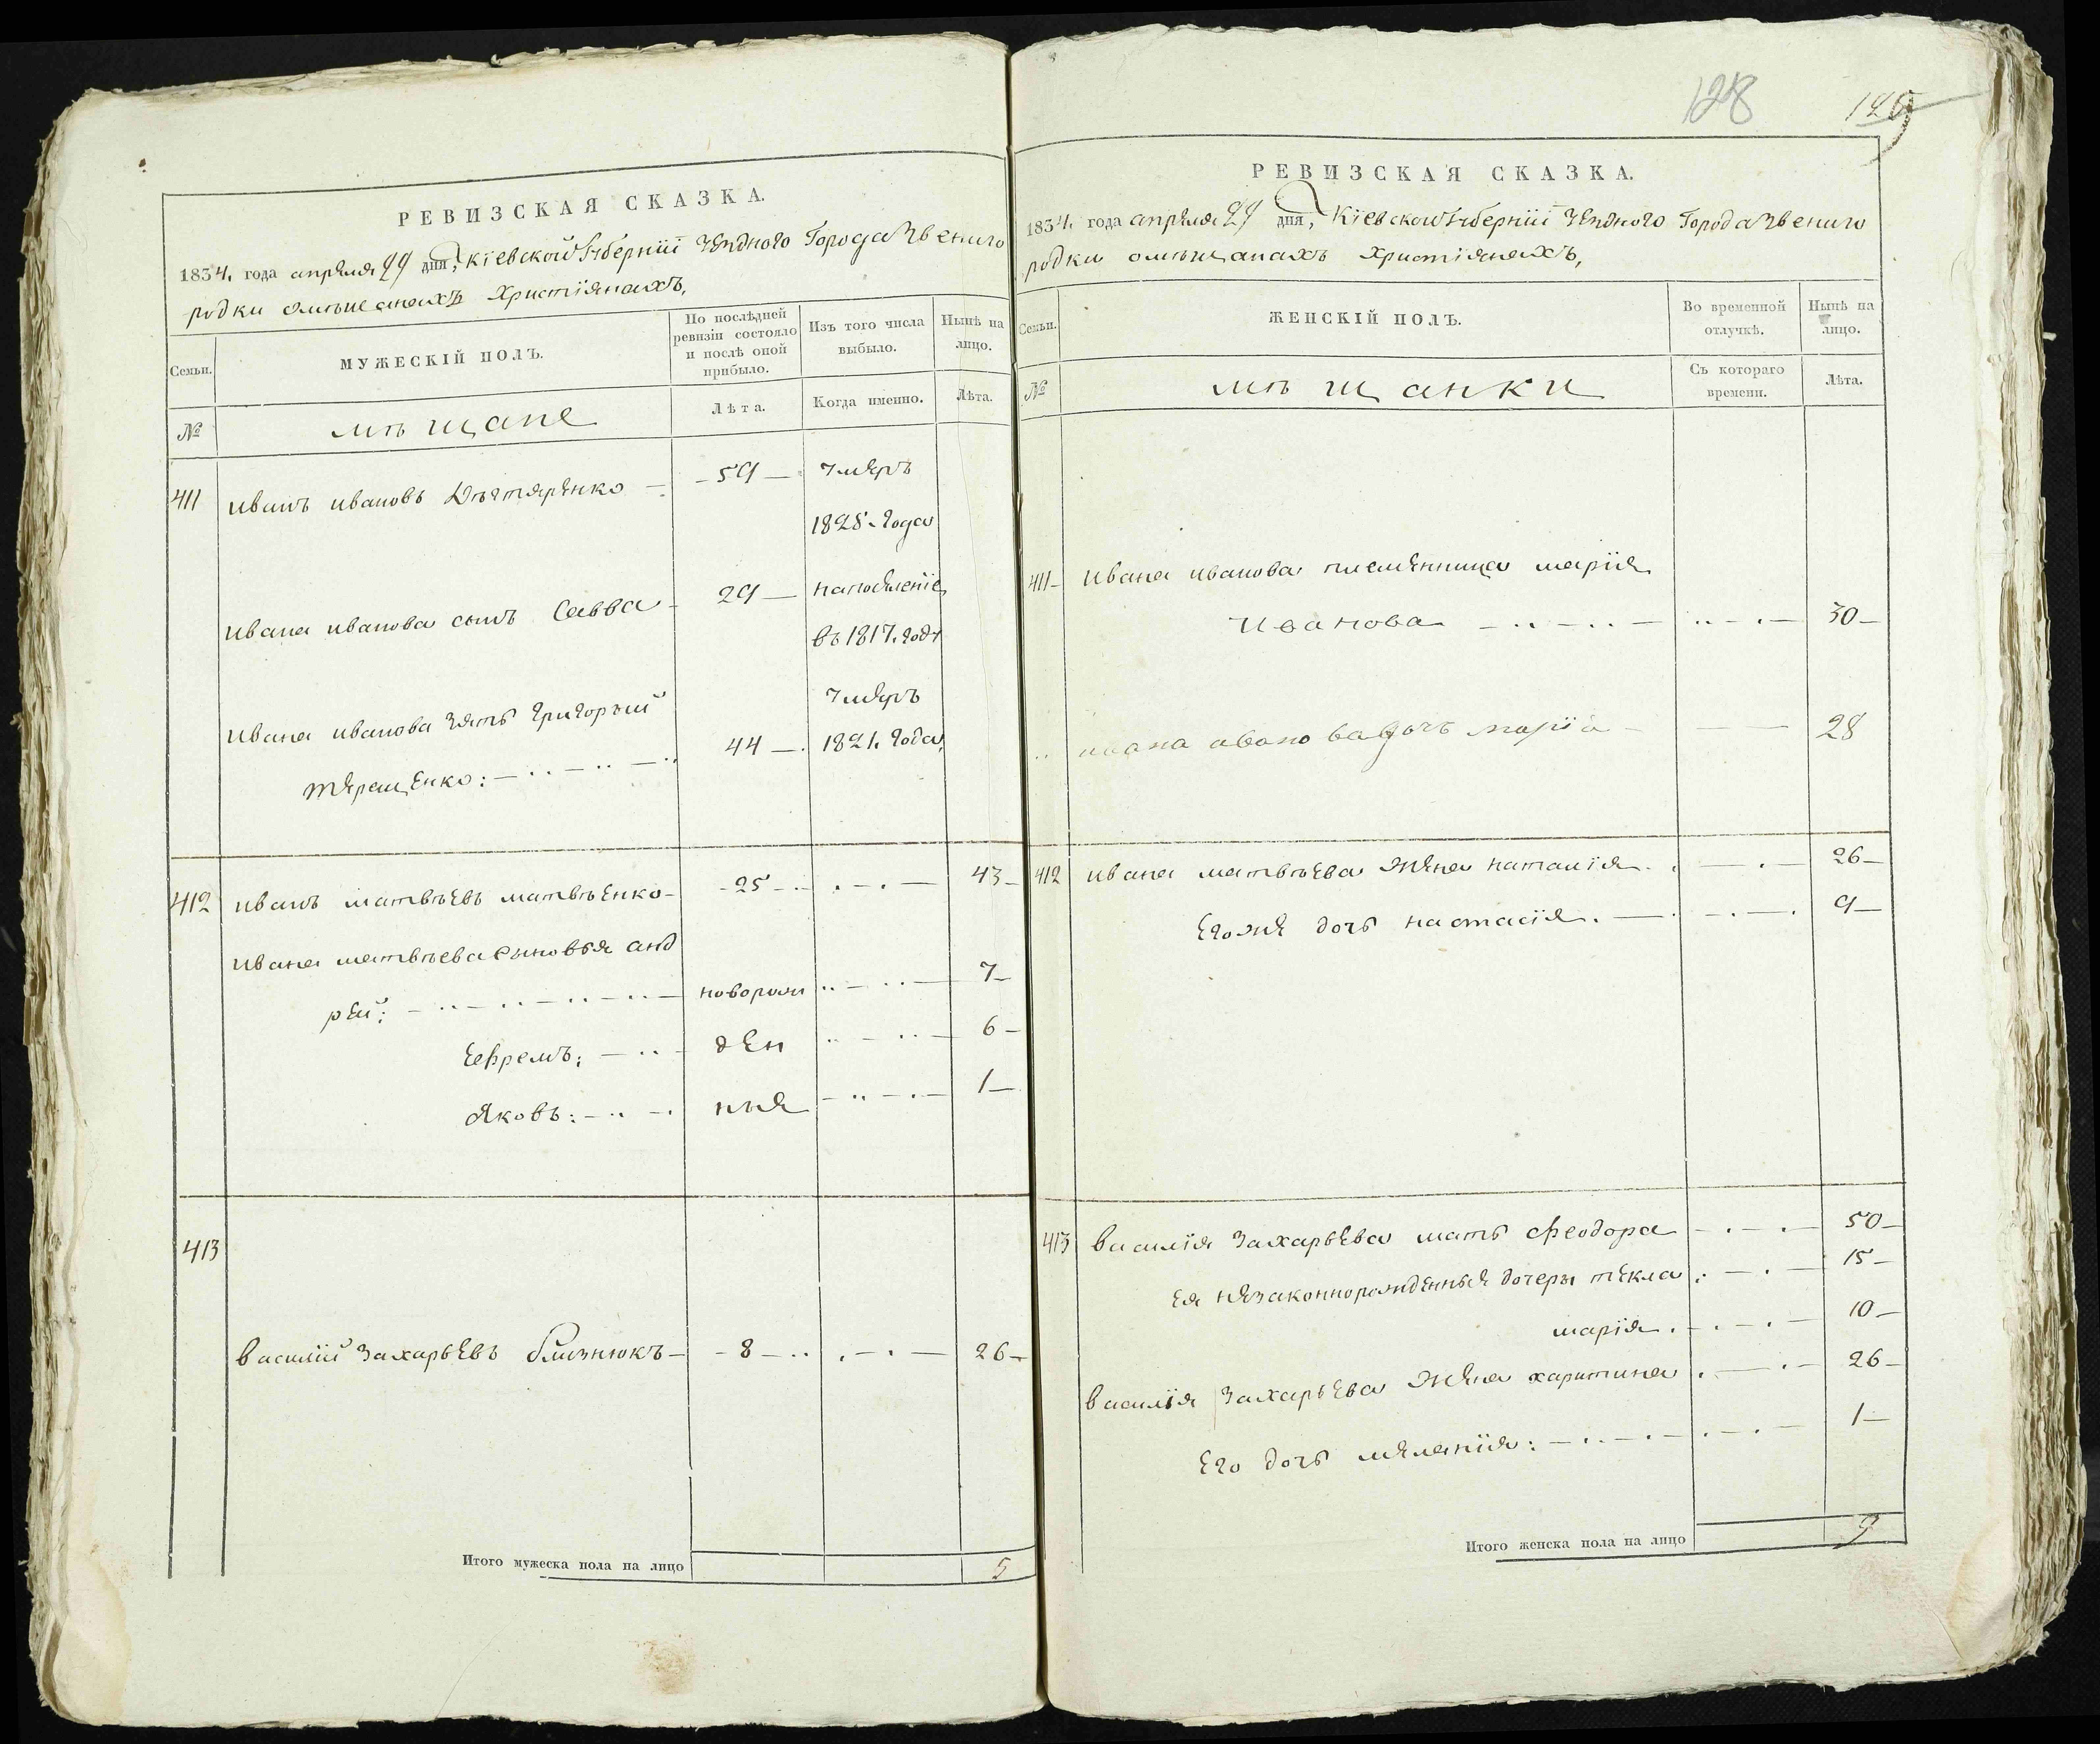 РЕВИЗСКАЯ СКАЗКА.
1834. года апреля 29 дня, Кiевской Губернiи уезднаго Города Звениго
родки омѣщанахъ христiянахъ,
Семьи.
МУЖЕСКIЙ ПОЛЪ.
По послѣдней ревизiи состояло и послѣ оной прибыло.
Изъ того числа выбыло.
Нынѣ на лицо.
№
мѣщане
Лѣта.
Когда именно.
Лѣта.
411 иванъ ивановъ Дѣгтяренко — 59 — умеръ
1828. года
ивана иванова сынъ Савва — 29 —
въ 1817. году
умеръ
ивана иванова зять григорый
терещенко: — 44 — 1821. года,
412 иванъ матвѣевъ матвѣенко — 25 — 43 —
ивана матвѣева сыновья анд
рей: — новорож 7 —
ефремъ: — ден 6 —
яковъ: — ныя 1 —
413
василiй захарьевъ близнюкъ — 8 — 26 —
Итого мужеска пола на лицо 5
128
РЕВИЗСКАЯ СКАЗКА.
1834. года апреля 29 дня, Кiевской Губернiи уезднаго Города Звениго
родки омѣщанахъ христiянахъ,
Семьи.
ЖЕНСКIЙ ПОЛЪ.
Во временной отлучкѣ.
Нынѣ на лицо.
№
мѣщанки
Съ котораго времени.
Лѣта.
411 — ивана иванова племенница марiя
иванова — 30 —
ивана иванова дочъ марiа — 28
412 ивана матвѣева жена наталiя — 26 —
его же дочь настасiя. — 9 —
413 василiя захарьева мать феодора — 50 —
ея незаконнорожденные дочеры текла: — 15 —
марiя. — 10 —
василiя захарьева жена харитина — 26 —
его дочь меланiя: — 1 —
Итого женска пола на лицо 9